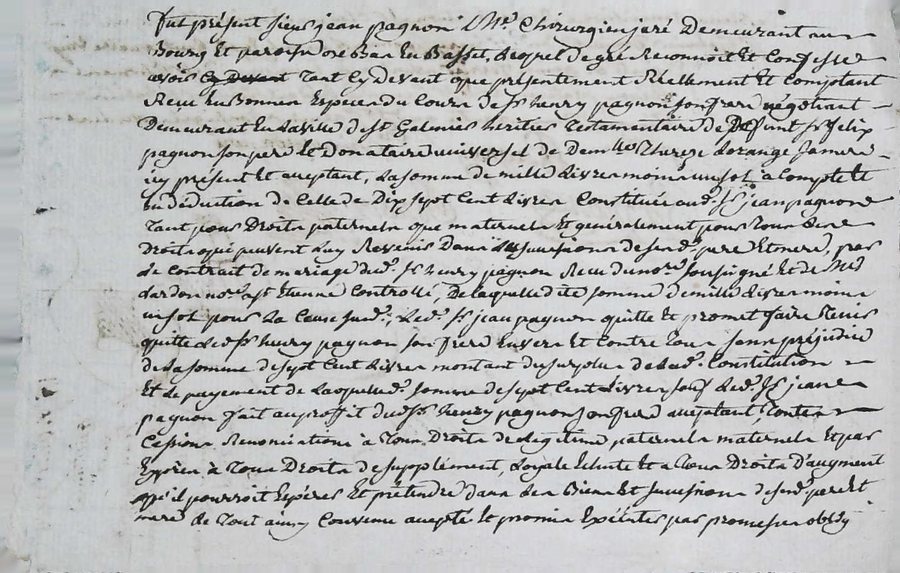 fut présent sieur jean pagnon Me Chirurgien juré Demeurant au
Bourg Et paroisse de Bas En Basset, Lequel de gré Reconnoit Et Confesse
avoir Cy Devant tant Cy Devant que présentement Réellement Et Comptant
Receu En Bonnes Espèces du Cours de Sr henry pagnon son frere négotiant
Demeurant En la ville de St Galmier héritier testamentaire de Defunt Sr felix
pagnon son pere Et Donataire universel de Demlle therèze Lorange sa mere
icy présent Et aceptant, La somme de mille Livres moins un sol, a Compte Et
En déduction de Celle de Dix sept Cent Livres Constituée aud. Sr jean pagnon
tant pour Droits paternels que maternels Et généralement pour tous autres
Droits qui peuvent Luy Revenir Dans les successions de sesd. pere Et mere, par
Le Contrait de mariage dud. Sr henry pagnon Receu du nore soussigné Et de Me
dardon nore a St Etienne Controllé, De laquelle dite somme de mille Livres moins
un sol pour La Cause susd., Led. Sr jean pagnon quitte Et promet faire tenir
quitte Led. Sr henry pagnon son frere Envers Et Contre tous sans préjudice
de La somme de sept Cent Livres montant du surplus de Lad. Constitution
Et Le payement de Laquelled. somme de sept Cent Livres Led. Sr jean
pagnon fait au proffit dud. Sr henry pagnon son frere aceptant, toutes
Cessions Renonciations à tous Droits de légitime paternels maternels Et par
Exprès à tous Droits de supplément, Loyale Echute Et a tous Droits D'augment
qu'il pourroit Espérer Et prétendre dans les Biens Et successions de sesd. pere Et
mere de tout ainsy Convenu acepté Et promis Exécuter par promesse oblig